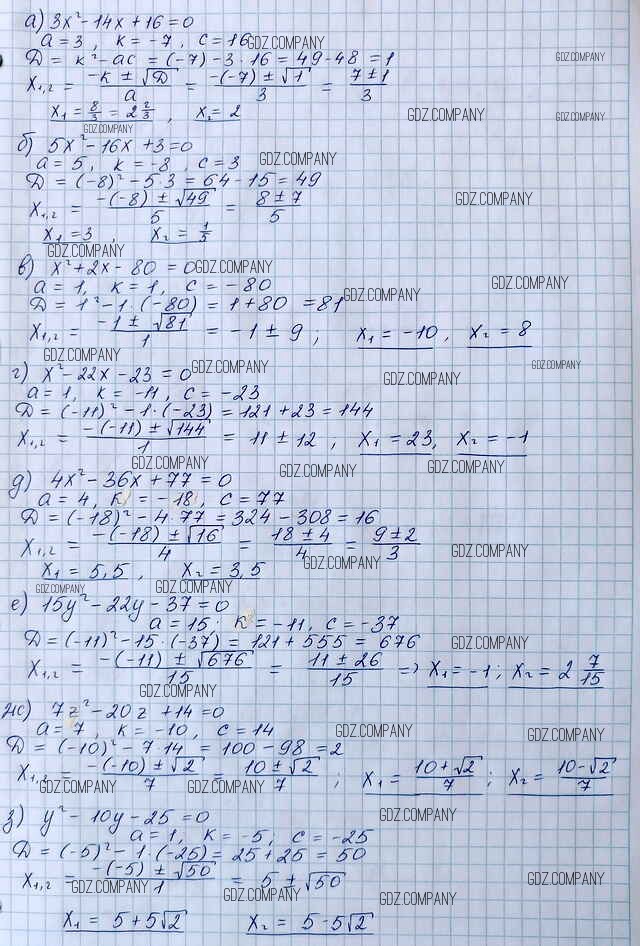 а) 3x² - 14x + 16 = 0
a = 3, к = -7, c = 16 GDZ.COMPANY
Д = к² - ac = (-7) - 3 · 16 = 49 - 48 = 1 GDZ.COMPANY
x₁,₂ = (-к ± √Д)/a = (-(-7) ± √1)/3 = (7 ± 1)/3
x₁ = 8/3 = 2 2/3, x₂ = 2 GDZ.COMPANY GDZ.COMPANY
GDZ.COMPANY
б) 5x² - 16x + 3 = 0
a = 5, к = -8, c = 3 GDZ.COMPANY
Д = (-8)² - 5·3 = 64 - 15 = 49
x₁,₂ = (-(-8) ± √49)/5 = (8 ± 7)/5 GDZ.COMPANY
x₁ = 3, x₂ = 1/5
GDZ.COMPANY
в) x² + 2x - 80 = 0 GDZ.COMPANY
a = 1, к = 1, c = -80 GDZ.COMPANY
Д = 1² - 1 · (-80) = 1 + 80 = 81 GDZ.COMPANY
x₁,₂ = (-1 ± √81)/1 = -1 ± 9; x₁ = -10, x₂ = 8
GDZ.COMPANY
г) x² - 22x - 23 = 0 GDZ.COMPANY GDZ.COMPANY GDZ.COMPANY
a = 1, к = -11, c = -23
Д = (-11)² - 1·(-23) = 121 + 23 = 144
x₁,₂ = (-(-11) ± √144)/1 = 11 ± 12, x₁ = 23, x₂ = -1
GDZ.COMPANY GDZ.COMPANY GDZ.COMPANY
д) 4x² - 36x + 77 = 0
a = 4, к = -18, c = 77
Д = (-18)² - 4·77 = 324 - 308 = 16
x₁,₂ = (-(-18) ± √16)/4 = (18 ± 4)/4 = (9 ± 2)/3 GDZ.COMPANY
GDZ.COMPANY
x₁ = 5,5, x₂ = 3,5
GDZ.COMPANY GDZ.COMPANY
е) 15y² - 22y - 37 = 0
a = 15; к = -11, c = -37
Д = (-11)² - 15·(-37) = 121 + 555 = 676 GDZ.COMPANY
x₁,₂ = (-(-11) ± √676)/15 = (11 ± 26)/15 => x₁ = -1; x₂ = 2 7/15
GDZ.COMPANY
ж) 7z² - 20z + 14 = 0
a = 7, к = -10, c = 14 GDZ.COMPANY GDZ.COMPANY
Д = (-10)² - 7·14 = 100 - 98 = 2
x₁,₂ = (-(-10) ± √2)/7 = (10 ± √2)/7; x₁ = (10 + √2)/7; x₂ = (10 - √2)/7
GDZ.COMPANY GDZ.COMPANY
з) y² - 10y - 25 = 0 GDZ.COMPANY
a = 1, к = -5, c = -25
Д = (-5)² - 1·(-25) = 25 + 25 = 50
x₁,₂ = (-(-5) ± √50)/1 = 5 ± √50 GDZ.COMPANY
GDZ.COMPANY GDZ.COMPANY GDZ.COMPANY
x₁ = 5 + 5√2 x₂ = 5 - 5√2